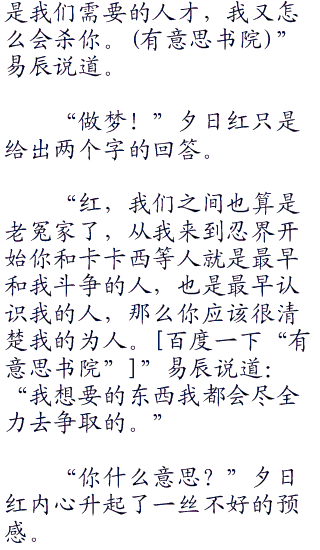 是我们需要的人才，我又怎
么会杀你。(有意思书院)”
易辰说道。
“做梦！”夕日红只是
给出两个字的回答。
“红，我们之间也算是
老冤家了，从我来到忍界开
始你和卡卡西等人就是最早
和我斗争的人，也是最早认
识我的人，那么你应该很清
楚我的为人。[百度一下“有
意思书院”]”易辰说道：
“我想要的东西我都会尽全
力去争取的。”
“你什么意思？”夕日
红内心升起了一丝不好的预
感。